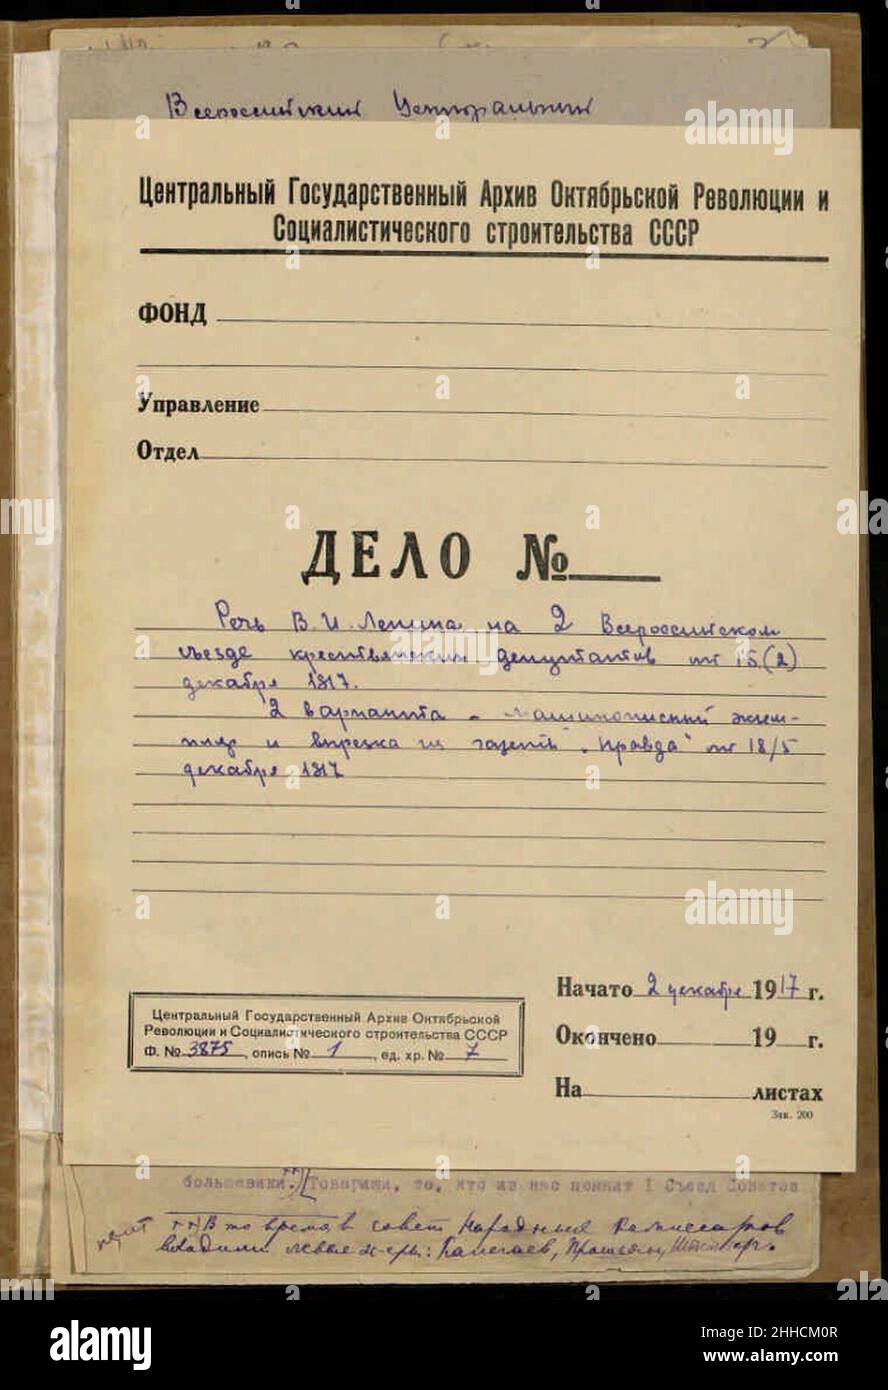 Всероссийский Центральный
Центральный Государственный Архив Октябрьской Революции и
Социалистического строительства СССР
ФОНД
Управление
Отдел
ДЕЛО №
Речь В. И. Ленина на 2 Всероссийском
съезде крестьянских депутатов от 15(2)
декабря 1917.
2 варианта - машинописный экзем-
пляр и вырезка из газеты „Правда" от 18/5
декабря 1917
Начато 2 декабря 1917 г.
Окончено 19 г.
На листах
Зак. 200
Центральный Государственный Архив Октябрьской
Революции и Социалистического строительства СССР
Ф. № 3875, опись № 1, ед. хр. № 7
большевики. Товарищи, те, кто из нас помнит I Съезд Советов
В то время в совет Народных Комиссаров
входили левые эс-еры: Колегаев, Прошьян, Штейнберг.
alamy
alamy
alamy
alamy
alamy
alamy
a
a
a
a
a
a
alamy
Image ID: 2HHCM0R
www.alamy.com